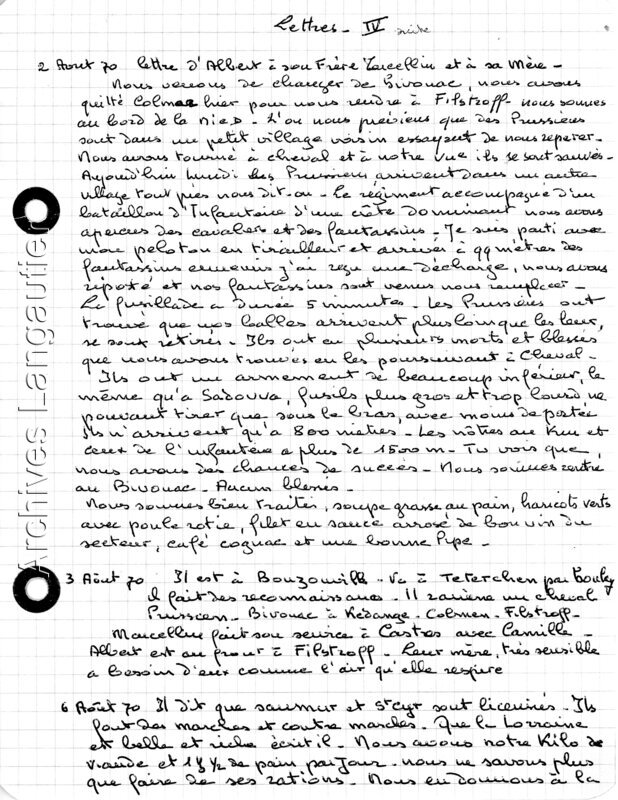 Lettres - IV suite
2 Aout 70 lettre d'Albert à son Frère Marcellin et à sa Mère -
Nous venons de changer de Bivouac, nous avons
quitté Colmar hier pour nous rendre à Filstroff - nous sommes
au bord de la Nied - L'on nous prévient que des Prussiens
sont dans un petit village voisin essayent de nous reperer -
Nous avons tourné à cheval et à notre vue ils se sont sauvés -
Aujourd'hui lundi des Prussiens arrivent dans un autre
village tout près nous dit-on - le régiment accompagné d'un
bataillon d'Infanterie d'une crête dominant nous avons
apercus des cavaliers et des fantassins - Je suis parti avec
mon peloton en tirailleur et arrivés à 99 mètres des
fantassins ennemis j'ai reçu une décharge, nous avons
riposté et nos fantassins sont venus nous remplacer -
La fusillade a durée 5 minutes - Les Prussiens ont
trouvé que nos balles arrivent plus loin que les leurs,
se sont retirés - Ils ont eu plusieurs morts et blessés
que nous avons trouvés en les poursuivant à Cheval -
Ils ont un armement de beaucoup inférieur, le
même qu'a Sadowa, fusils plus gros et trop lourd ne
pouvant tirer que sous le bras, avec moins de portée
ils n'arrivent qu'a 800 mètres - Les nôtres au Km et
ceux de l'infanterie a plus de 1500 m - Tu vois que
nous avons des chances de succès - Nous sommes rentré
au Bivouac - Aucun blessés -
Nous sommes bien traités, soupe grasse au pain, haricots verts
avec poule rotie, filet en sauce arrosé de bon vin du
secteur, café cognac et une bonne Pipe -
3 Août 70 Il est à Bouzonville - Va à Teterchen par Boulay
Il fait des reconnaissances - Il ramène un cheval
Prussien - Bivouac à Kédange - Colmen - Filstroff -
Marcellin fait son service à Castres avec Camille -
Albert est au front à Filstroff - Leur mère, très sensible
a besoin d'eux comme l'air qu'elle respire
6 Août 70 Il dit que saumur et St cyr sont licenciés - Ils
font des marches et contre marches - Que la Lorraine
est belle et riche écrit il - Nous avons notre Kilo de
viande et 1 ½ de pain par jour - nous ne savons plus
que faire de ses rations - Nous en donnons à la
Archives Langautier